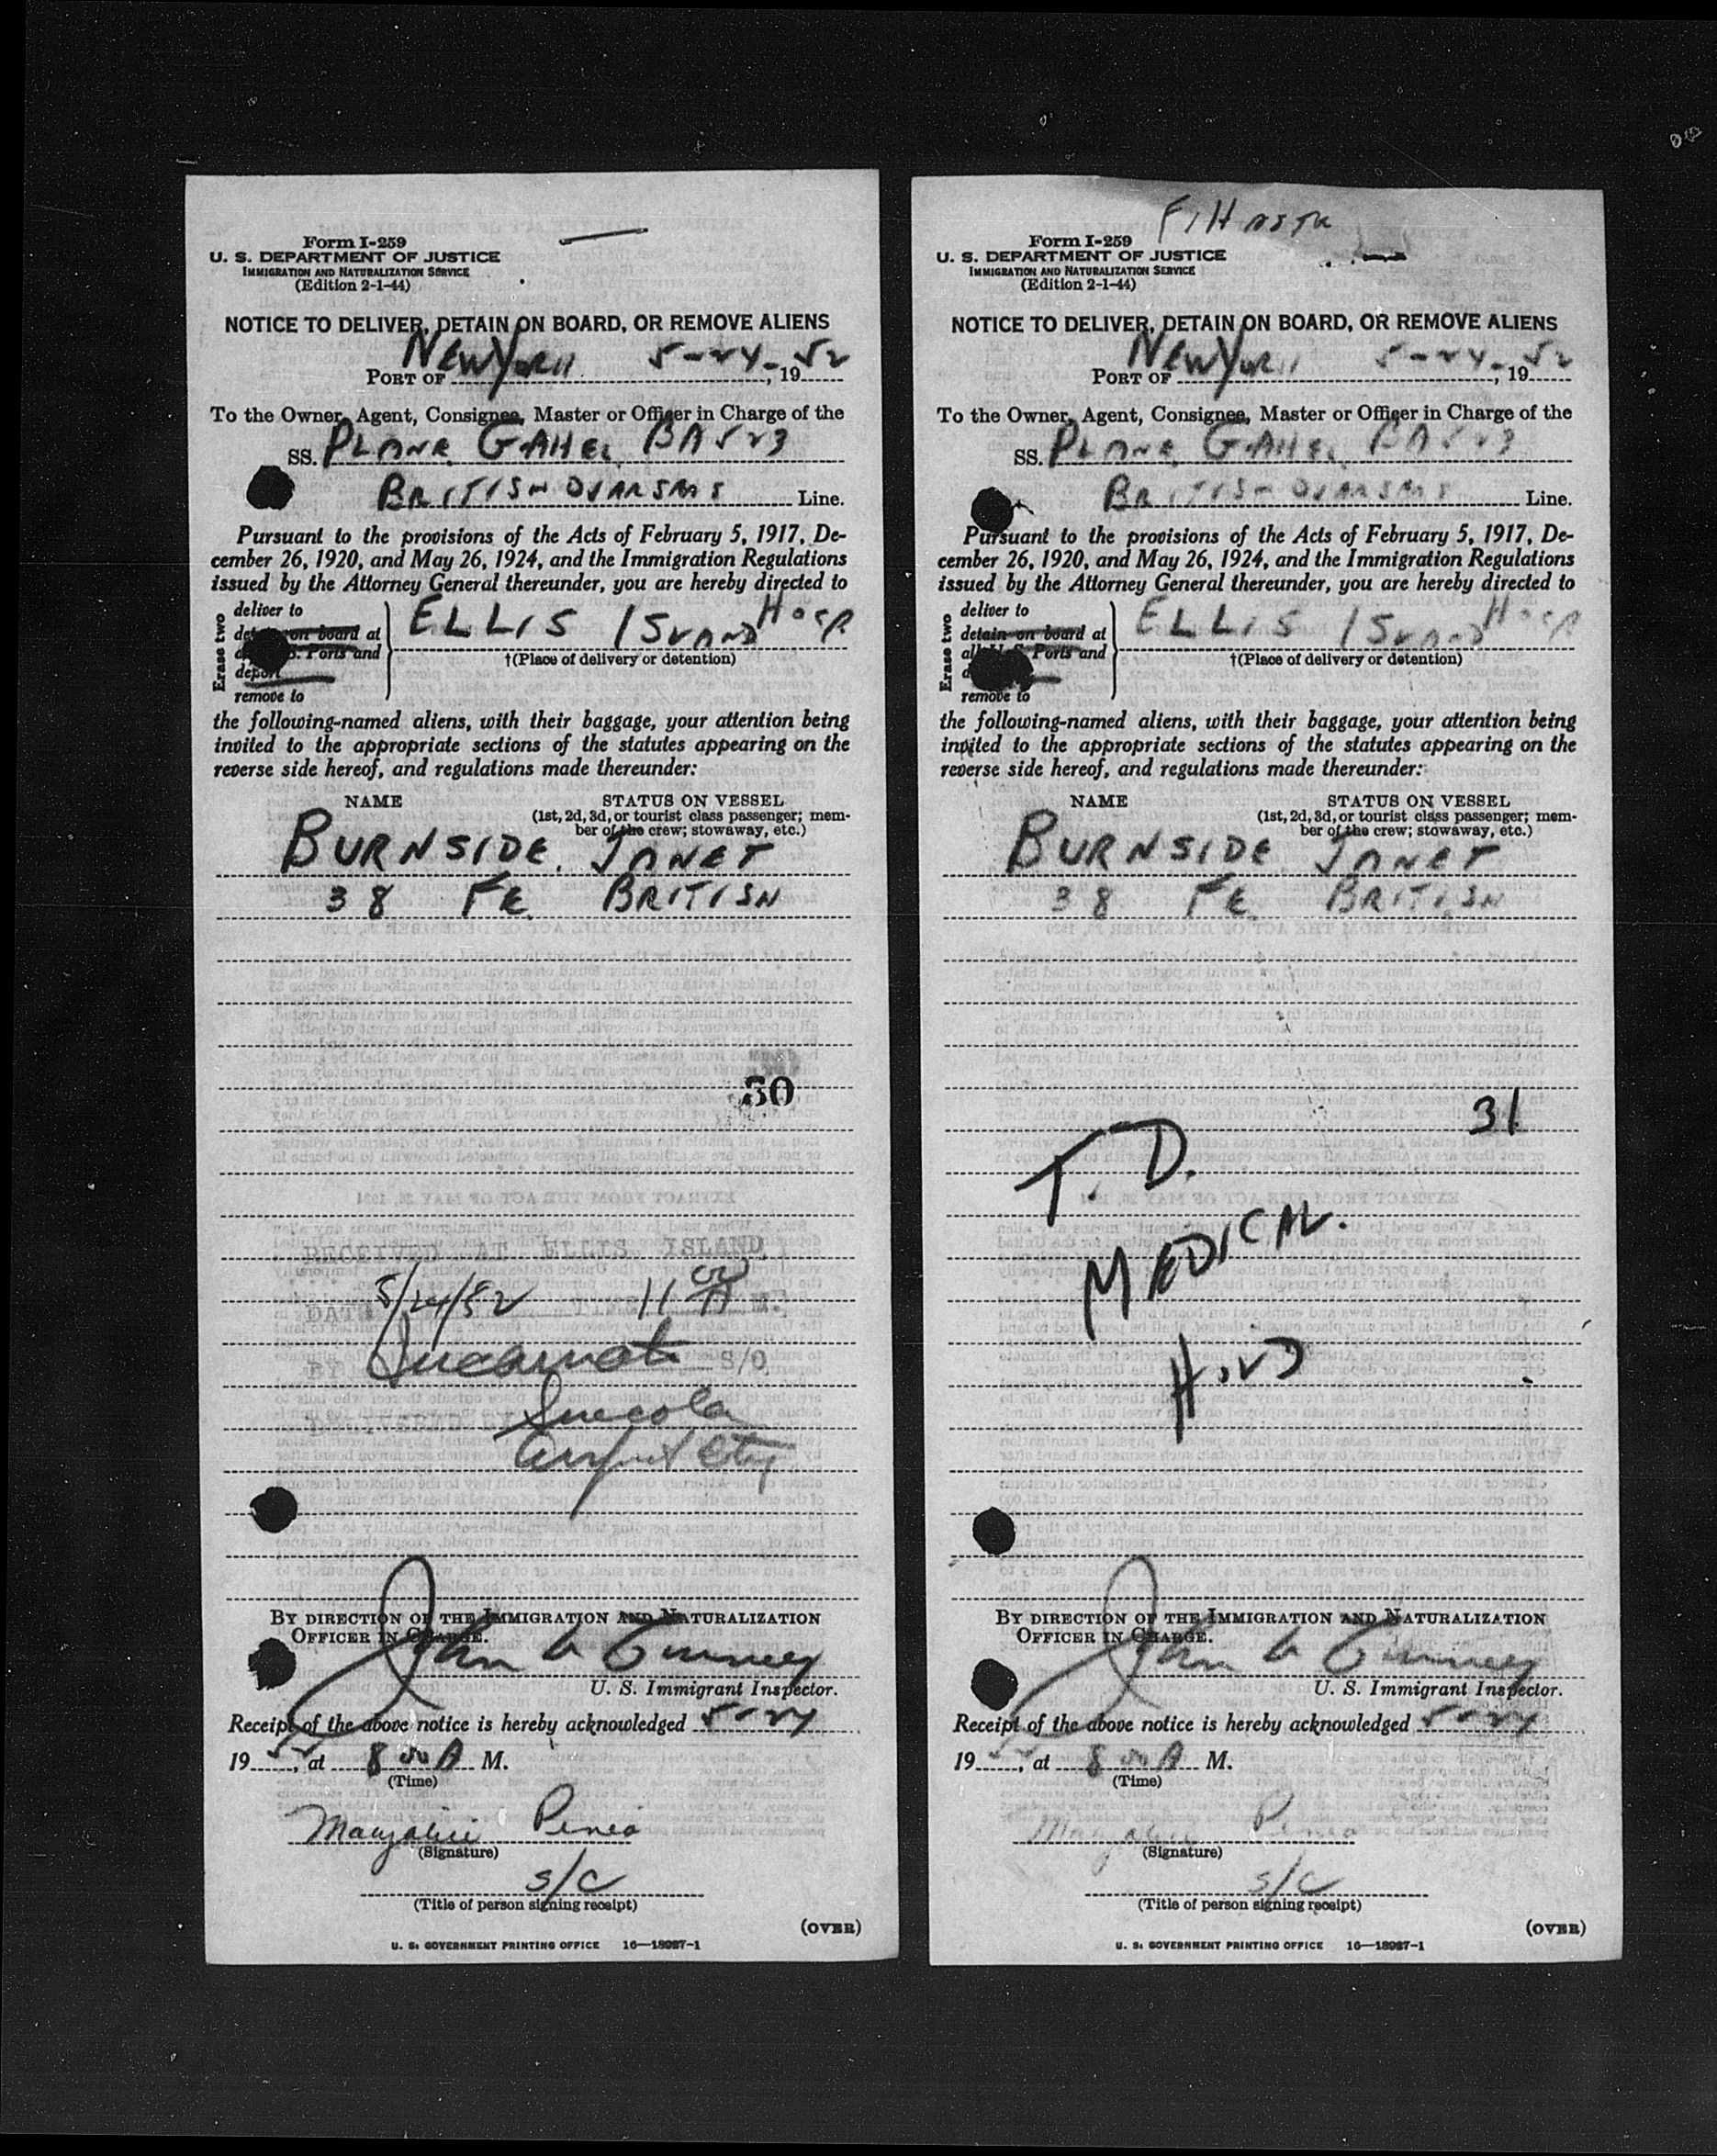 Form I-259
U. S. DEPARTMENT OF JUSTICE
IMMIGRATION AND NATURALIZATION SERVICE
(Edition 2-1-44)
NOTICE TO DELIVER, DETAIN ON BOARD, OR REMOVE ALIENS
PORT OF New York 5-24-, 1952
To the Owner, Agent, Consignee, Master or Officer in Charge of the
SS. PLANE BA 523
BRITISH OVERSEAS Line.
Pursuant to the provisions of the Acts of February 5, 1917, De-
cember 26, 1920, and May 26, 1924, and the Immigration Regulations
issued by the Attorney General thereunder, you are hereby directed to
Erase two
deliver to
on board at
S. Ports and
deport
remove to
ELLIS ISLAND HOSP
†(Place of delivery or detention)
the following-named aliens, with their baggage, your attention being
invited to the appropriate sections of the statutes appearing on the
reverse side hereof, and regulations made thereunder:
NAME
STATUS ON VESSEL
(1st, 2d, 3d, or tourist class passenger; mem-
ber of the crew; stowaway, etc.)
BURNSIDE. JANET
38 FE BRITISH
30
RECEIVED AT ELLIS ISLAND
DATE 5/24/52 TIME 11 00 A M.
BY S/O
DELIVERED BY
BY DIRECTION OF THE IMMIGRATION AND NATURALIZATION
OFFICER IN CHARGE.
John
U. S. Immigrant Inspector.
Receipt of the above notice is hereby acknowledged 5-24
1952, at 8 00 A M.
(Time)
(Signature)
S/C
(Title of person signing receipt)
(OVER)
U. S. GOVERNMENT PRINTING OFFICE 16—18987-1
Form I-259
U. S. DEPARTMENT OF JUSTICE
IMMIGRATION AND NATURALIZATION SERVICE
(Edition 2-1-44)
NOTICE TO DELIVER, DETAIN ON BOARD, OR REMOVE ALIENS
PORT OF New York 5-24-, 1952
To the Owner, Agent, Consignee, Master or Officer in Charge of the
SS. PLANE BA 523
BRITISH OVERSEAS Line.
Pursuant to the provisions of the Acts of February 5, 1917, De-
cember 26, 1920, and May 26, 1924, and the Immigration Regulations
issued by the Attorney General thereunder, you are hereby directed to
Erase two
deliver to
detain on board at
all U. S. Ports and
remove to
ELLIS ISLAND HOSP
†(Place of delivery or detention)
the following-named aliens, with their baggage, your attention being
invited to the appropriate sections of the statutes appearing on the
reverse side hereof, and regulations made thereunder:
NAME
STATUS ON VESSEL
(1st, 2d, 3d, or tourist class passenger; mem-
ber of the crew; stowaway, etc.)
BURNSIDE JANET
38 FE BRITISH
31
T. D.
MEDICAL
HOLD
BY DIRECTION OF THE IMMIGRATION AND NATURALIZATION
OFFICER IN CHARGE.
John
U. S. Immigrant Inspector.
Receipt of the above notice is hereby acknowledged 5-24
1952, at 8 00 A M.
(Time)
(Signature)
S/C
(Title of person signing receipt)
(OVER)
U. S. GOVERNMENT PRINTING OFFICE 16—18987-1